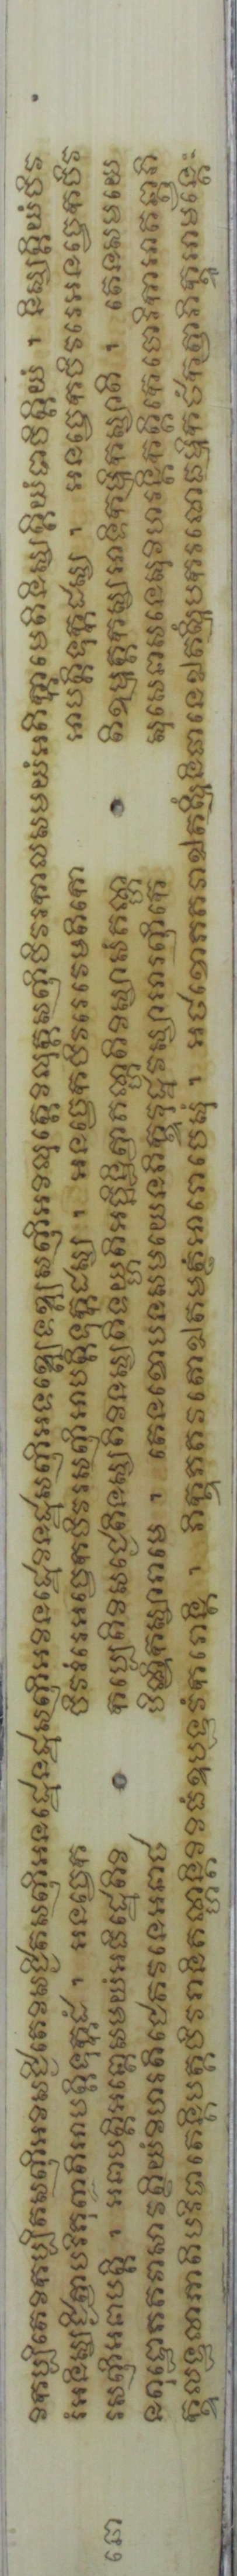 វិកប្បិតេវិកប្បិតសញ្ញីអវិសជ្ជិតេវិសជ្ជិតសញ្ញីអនដ្ឋេនដ្ឋសញ្ញីអវិនដ្ឋេវិនដ្ឋសញ្ញីអទឌ្ឍេទឌ្ឍសញ្ញីអវិលុត្តេវិលុត្តសញ្ញីចីវរកាលសមយំអតិក្កាមេតិនិស្សគ្គិយំបាចិត្តិយំ ។ និស្សគ្គិយំចីវ
រំអនិស្សជ្ជិត្វាបរិភុញ្ជតិអាបត្តិទុក្កដំ ។ អនច្ចេក ចីវរេអច្ចេកចីវរសញ្ញីអាបត្តិទុក្កដស្ស ។ អនច្ចេកចីវរេវេមតិកោ អាបត្តិទុក្កដស្ស ។ អនច្ចេកចីវរេអនច្ចេកចីវ
ឆោ រសញ្ញីអនាបត្តិ ។ អនាបត្តិអន្តោសមយំអធិដ្ឋេតិវិ កប្បេតិវិសជ្ជេតិនស្សតិវិនស្សតិឌយ្ហតិអច្ឆិន្ទិត្វាគណ្ហតិវិស្សាសំគណ្ហ តិឧម្មត្តកស្សអាទិកម្មិកស្សាតិ ។ តេនសមយេ
នពុទ្ធោភគវាសាវត្ថិយំវិហរតិជេតវនេអនាថ បិណ្ឌិកស្សារាមេ ។ តេនខោបនសមយេនភិក្ខូវុដ្ឋវស្សាអារញ្ញកេ សុសេនាសនេសុវិហរន្តិកត្តិកចោរកា ភិ
ក្ខូលទ្ធលាភាតិបរិបាតេន្តិបត្តចីវរានិគណ្ហន្តិវិវិធំឧបទ្ទវំករោន្តិ ។ ភិក្ខូភគវតោឯតមត្ថំអារោចេសុំ ។ អថខោភគវាឯតស្មិំនិទានេឯតស្មិំបករណេធម្មិកថំកត្វាភិក្ខូអាមន្តេ